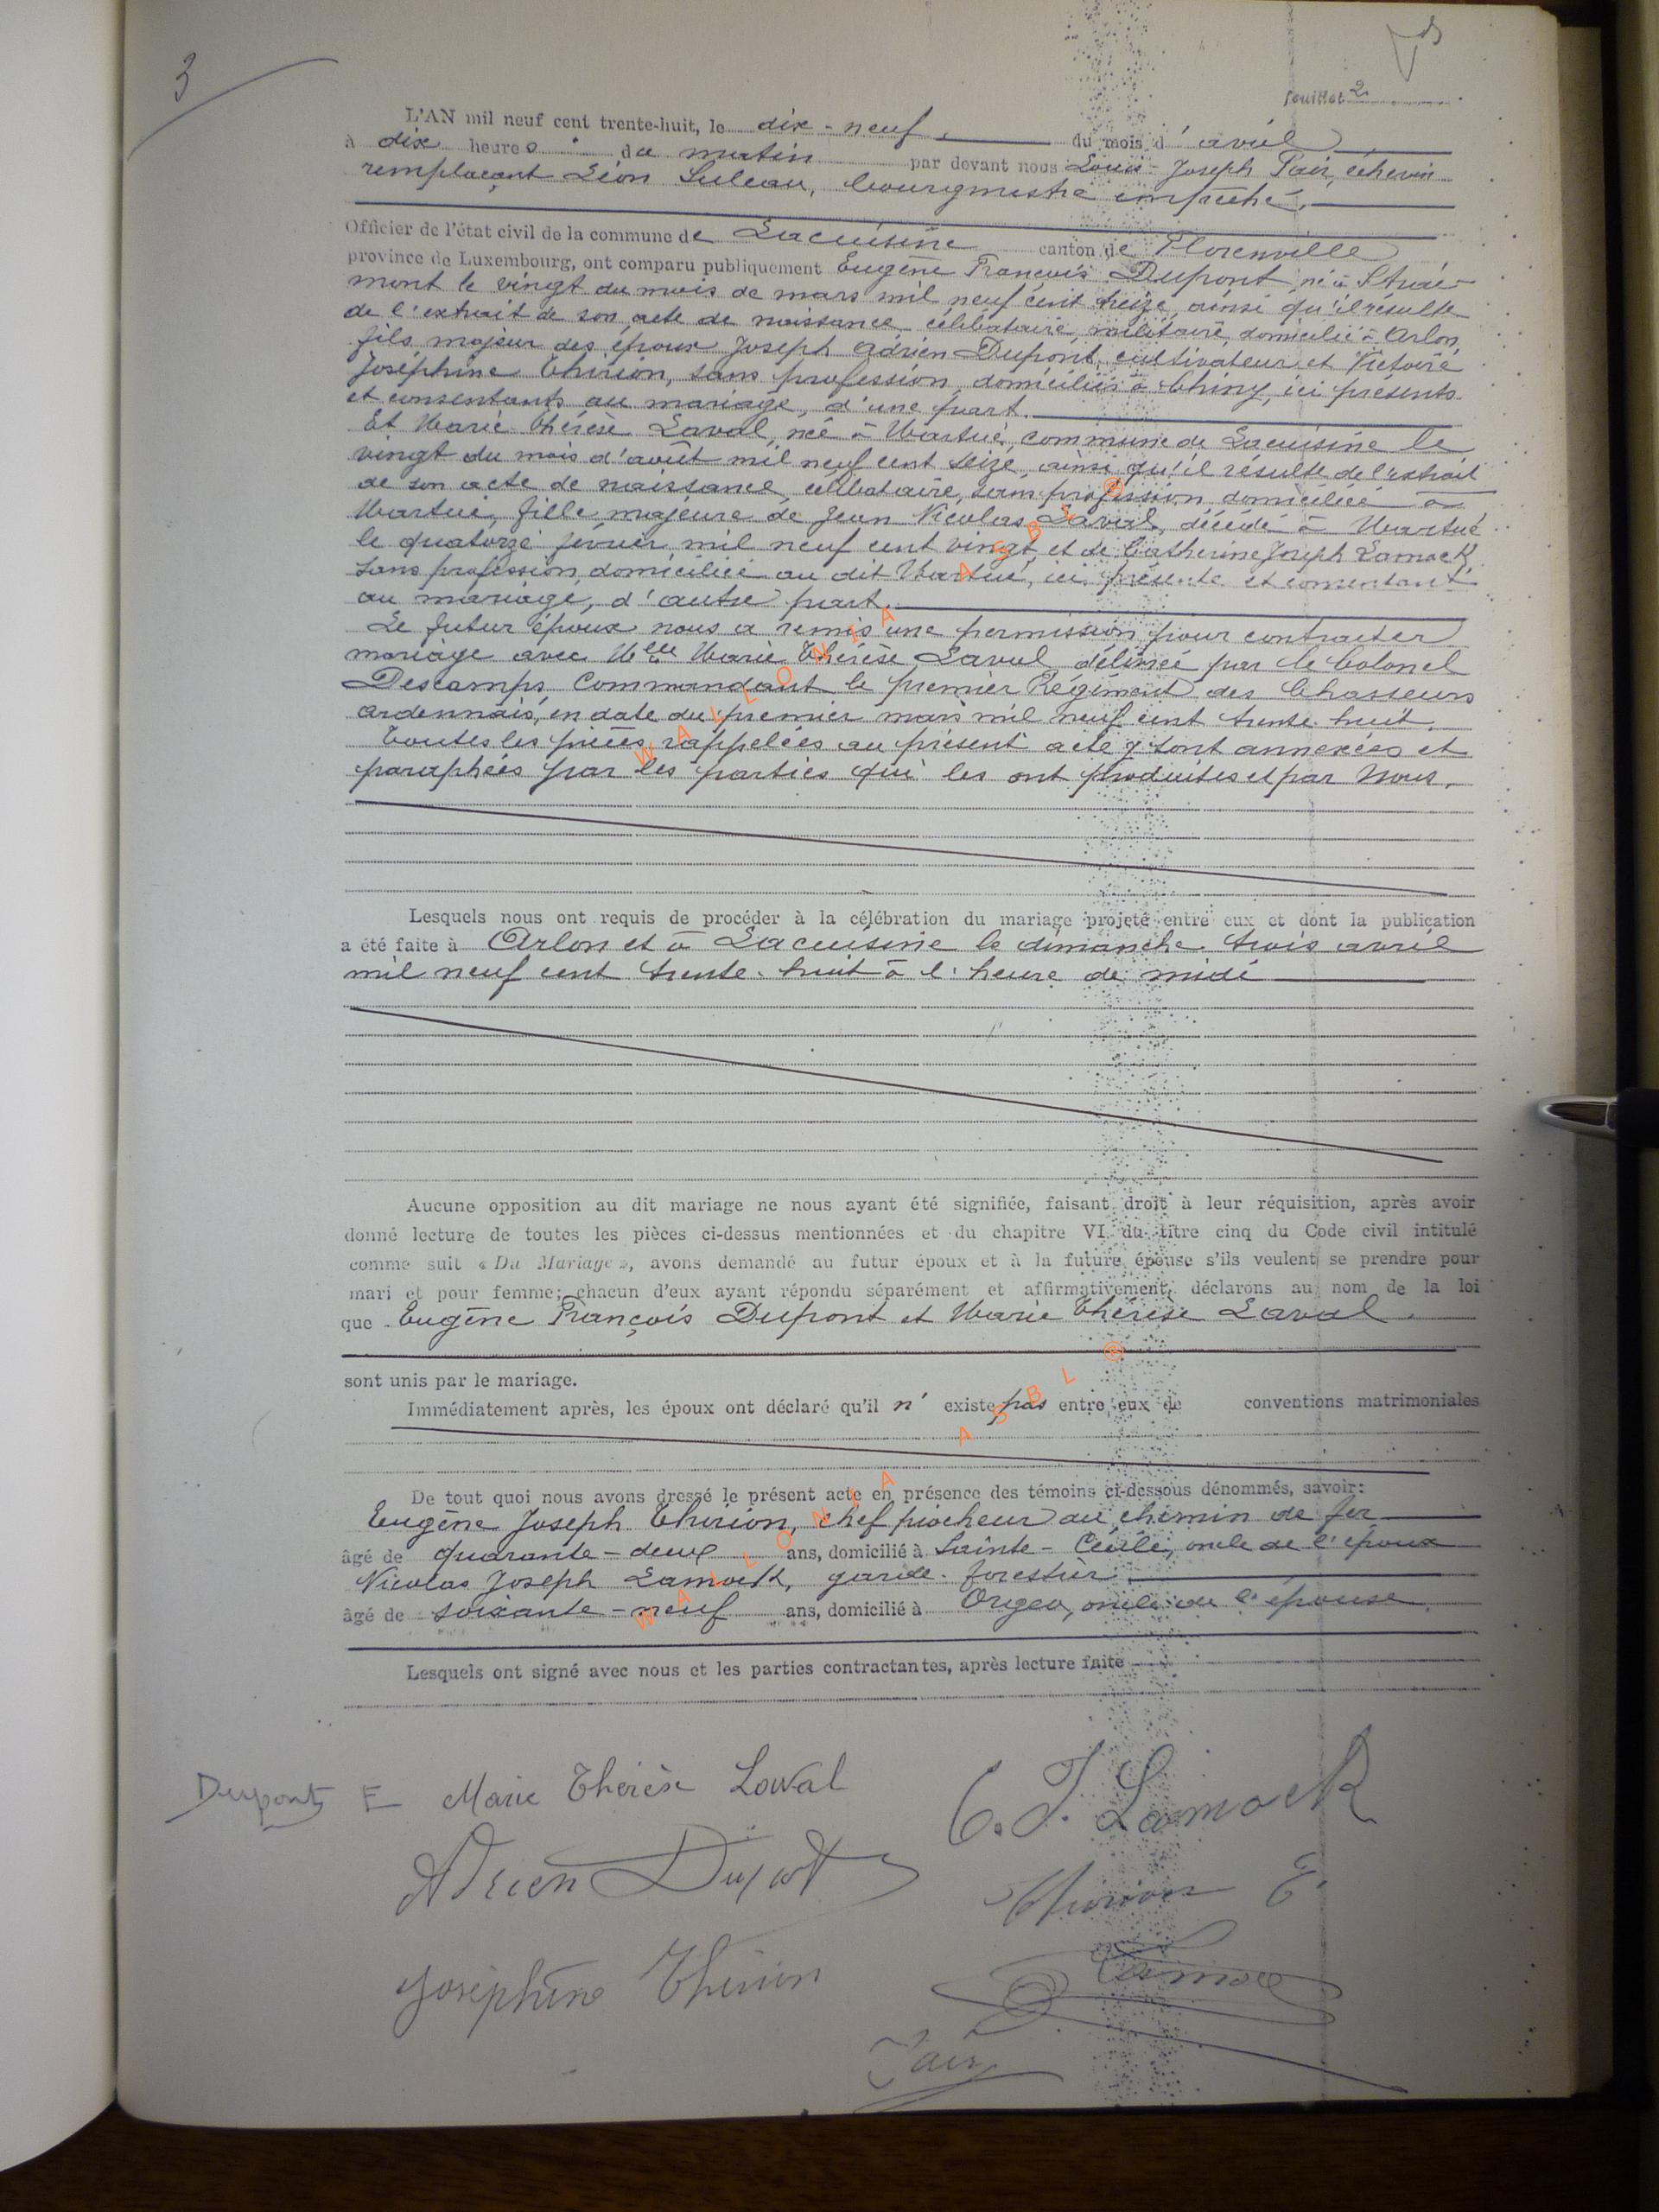 3
feuillet 2
L'AN mil neuf cent trente-huit, le dix-neuf du mois d'avril
à dix heures du matin par devant nous Louis-Joseph Pair, échevin
remplaçant Léon Suleau, bourgmestre empêché.
Officier de l'état civil de la commune de Lacuisine canton de Florenville
province de Luxembourg, ont comparu publiquement Eugène François Dupont, né à Strai-
mont le vingt du mois de mars mil neuf cent treize, ainsi qu'il résulte
de l'extrait de son acte de naissance, célibataire, militaire, domicilié à Arlon,
fils majeur des époux Joseph Adrien Dupont, cultivateur et Victoire
Joséphine Thirion, sans profession, domiciliés à Chiny, ici présents
et consentants au mariage, d'une part.
Et Marie Thérèse Laval, née à Martué, commune de Lacuisine le
vingt du mois d'août mil neuf cent seize, ainsi qu'il résulte de l'extrait
de son acte de naissance, célibataire, sans profession, domiciliée à
Martué, fille majeure de Jean Nicolas Laval, décédé à Martué
le quatorze février mil neuf cent vingt, et de Catherine Joseph Lamock,
sans profession, domiciliée au dit Martué, ici présente et consentant
au mariage, d'autre part.
Le futur époux nous a remis une permission pour contracter
mariage avec Melle Marie Thérèse Laval, délivrée par le Colonel
Descamps, Commandant le premier Régiment des Chasseurs
ardennais, en date du premier mars mil neuf cent trente-huit.
Toutes les pièces rappelées au présent acte y sont annexées et
paraphées par les parties qui les ont produites et par Nous.
Lesquels nous ont requis de procéder à la célébration du mariage projeté entre eux et dont la publication
a été faite à Arlon et à Lacuisine le dimanche trois avril
mil neuf cent trente-huit à l'heure de midi
Aucune opposition au dit mariage ne nous ayant été signifiée, faisant droit à leur réquisition, après avoir
donné lecture de toutes les pièces ci-dessus mentionnées et du chapitre VI du titre cinq du Code civil intitulé
comme suit « Du Mariage », avons demandé au futur époux et à la future épouse s'ils veulent se prendre pour
mari et pour femme; chacun d'eux ayant répondu séparément et affirmativement, déclarons au nom de la loi
que Eugène François Dupont et Marie Thérèse Laval.
sont unis par le mariage.
Immédiatement après, les époux ont déclaré qu'il n'existe pas entre eux de conventions matrimoniales
De tout quoi nous avons dressé le présent acte en présence des témoins ci-dessous dénommés, savoir:
Eugène Joseph Thirion, chef piocheur au chemin de fer
âgé de quarante-deux ans, domicilié à Sainte-Cécile, oncle de l'époux
Nicolas Joseph Lamock, garde-forestier
âgé de soixante-neuf ans, domicilié à Orgeo, oncle de l'épouse.
Lesquels ont signé avec nous et les parties contractantes, après lecture faite
Dupont E Marie Thérèse Laval C. J. Lamock
Adrien Dupont Thirion E
Joséphine Thirion Lamock
Pair
WALLONIA ASBL ®
WALLONIA ASBL ®